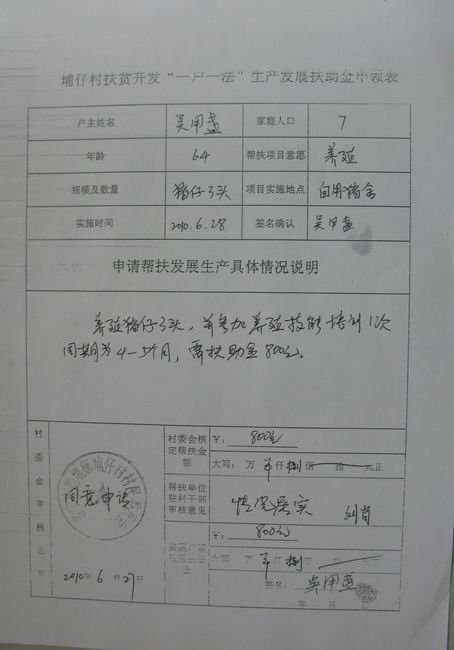 埔仔村扶贫开发“一户一法”生产发展扶助金申领表
户主姓名 吴甲盏 家庭人口 7
年龄 64 帮扶项目意愿 养殖
规模及数量 猪仔3头 项目实施地点 自用猪舍
实施时间 2010.6.28 签名确认 吴甲盏
申请帮扶发展生产具体情况说明
养殖猪仔3头，并参加养殖技能培训1次
周期为4-5个月，需扶助金800元。
村委会审核
村委会核定帮扶金额 ¥: 800元
大写: 万 仟 捌 佰 拾 元正
同意申请
2010年 6 月 27 日
帮扶单位驻村干部审核意见 情况属实
¥: 800元
大写: 捌
签名: 吴甲盏
年 月 日